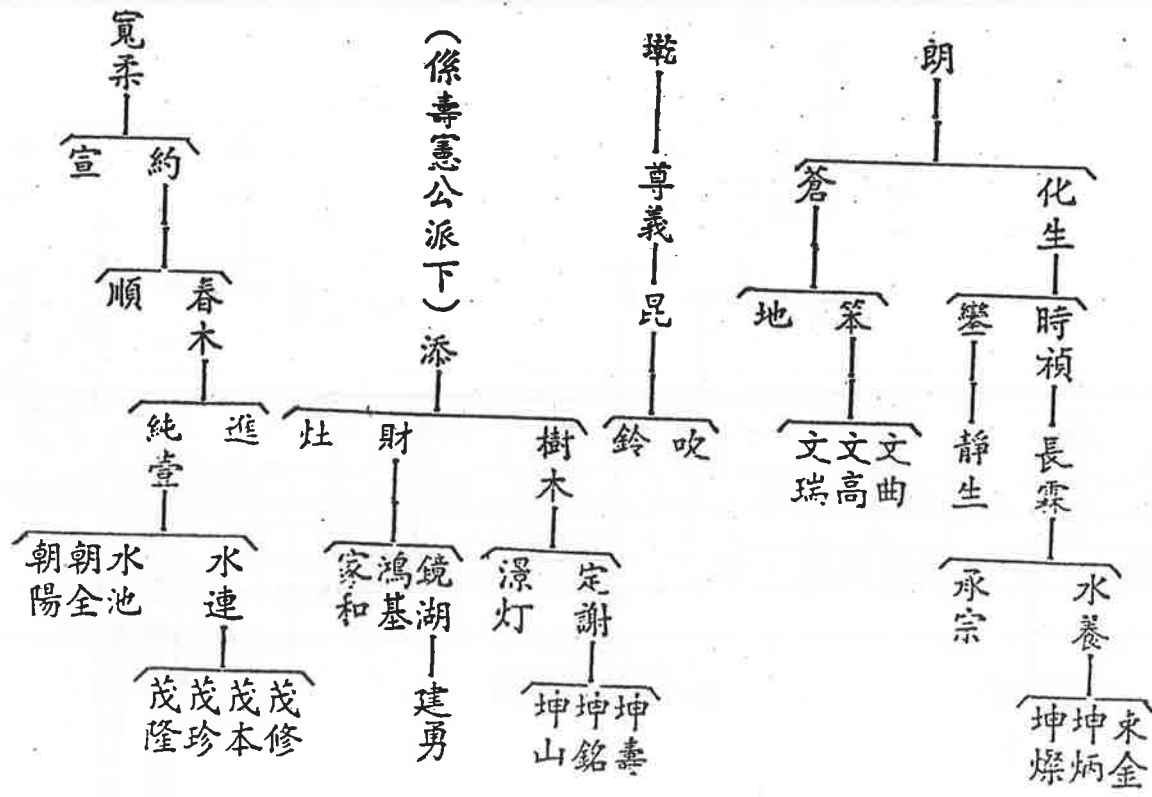 朗
化生
蒼
時禎
笨
地
長霖
靜生
文曲
文高
文瑞
水養
承宗
坤炳
坤燦
尊義
昆
吹
鈴
(係壽憲公派下)
添
樹木
財
灶
定謝
澋灯
鏡湖
鴻基
家和
坤壽
坤銘
坤山
建勇
寬柔
約
宣
春木
順
進
純壹
水連
水池
朝全
朝陽
茂修
茂本
茂珍
茂隆